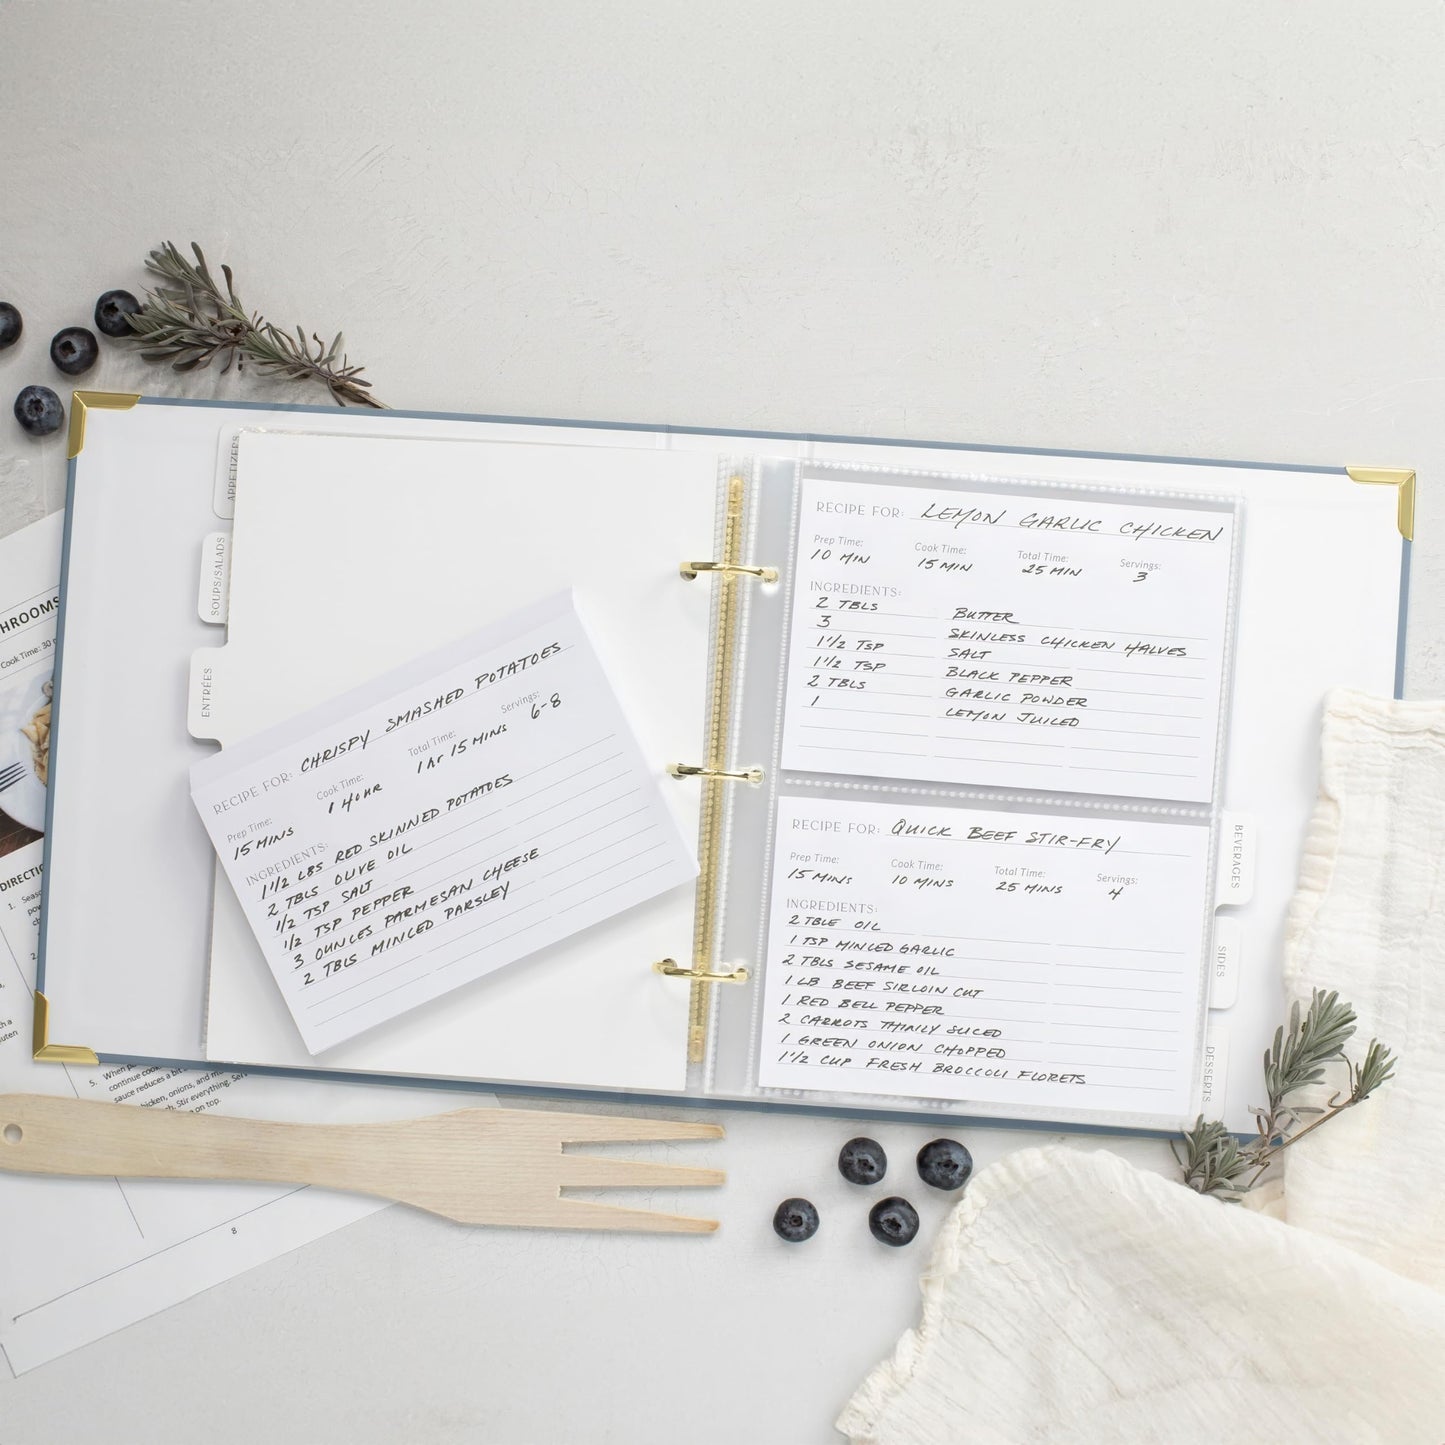 APPETIZERS
SOUPS/SALADS
ENTRÉES
RECIPE FOR: CHRISPY SMASHED POTATOES
Prep Time: Cook Time: Total Time: Servings:
15 MINS 1 HOUR 1 hr 15 MINS 6-8
INGREDIENTS:
1 1/2 LBS RED SKINNED POTATOES
2 TBLS OLIVE OIL
1/2 TSP SALT
1/2 TSP PEPPER
3 OUNCES PARMESAN CHEESE
2 TBLS MINCED PARSLEY
RECIPE FOR: LEMON GARLIC CHICKEN
Prep Time: Cook Time: Total Time: Servings:
10 MIN 15 MIN 25 MIN 3
INGREDIENTS:
2 TBLS BUTTER
3 SKINLESS CHICKEN HALVES
1 1/2 TSP SALT
1 1/2 TSP BLACK PEPPER
2 TBLS GARLIC POWDER
1 LEMON JUICED
RECIPE FOR: QUICK BEEF STIR-FRY
Prep Time: Cook Time: Total Time: Servings:
15 MINS 10 MINS 25 MINS 4
INGREDIENTS:
2 TBLE OIL
1 TSP MINCED GARLIC
2 TBLS SESAME OIL
1 LB BEEF SIRLOIN CUT
1 RED BELL PEPPER
2 CARROTS THINLY SLICED
1 GREEN ONION CHOPPED
1 1/2 CUP FRESH BROCCOLI FLORETS
BEVERAGES
SIDES
DESSERTS
HROOMS
Cook Time: 30
DIRECTIO
1. Seaso
2.
5. When
continue cook
sauce reduces a bit
hicken, onions, and mu
Stir everything. Ser
on top.
8